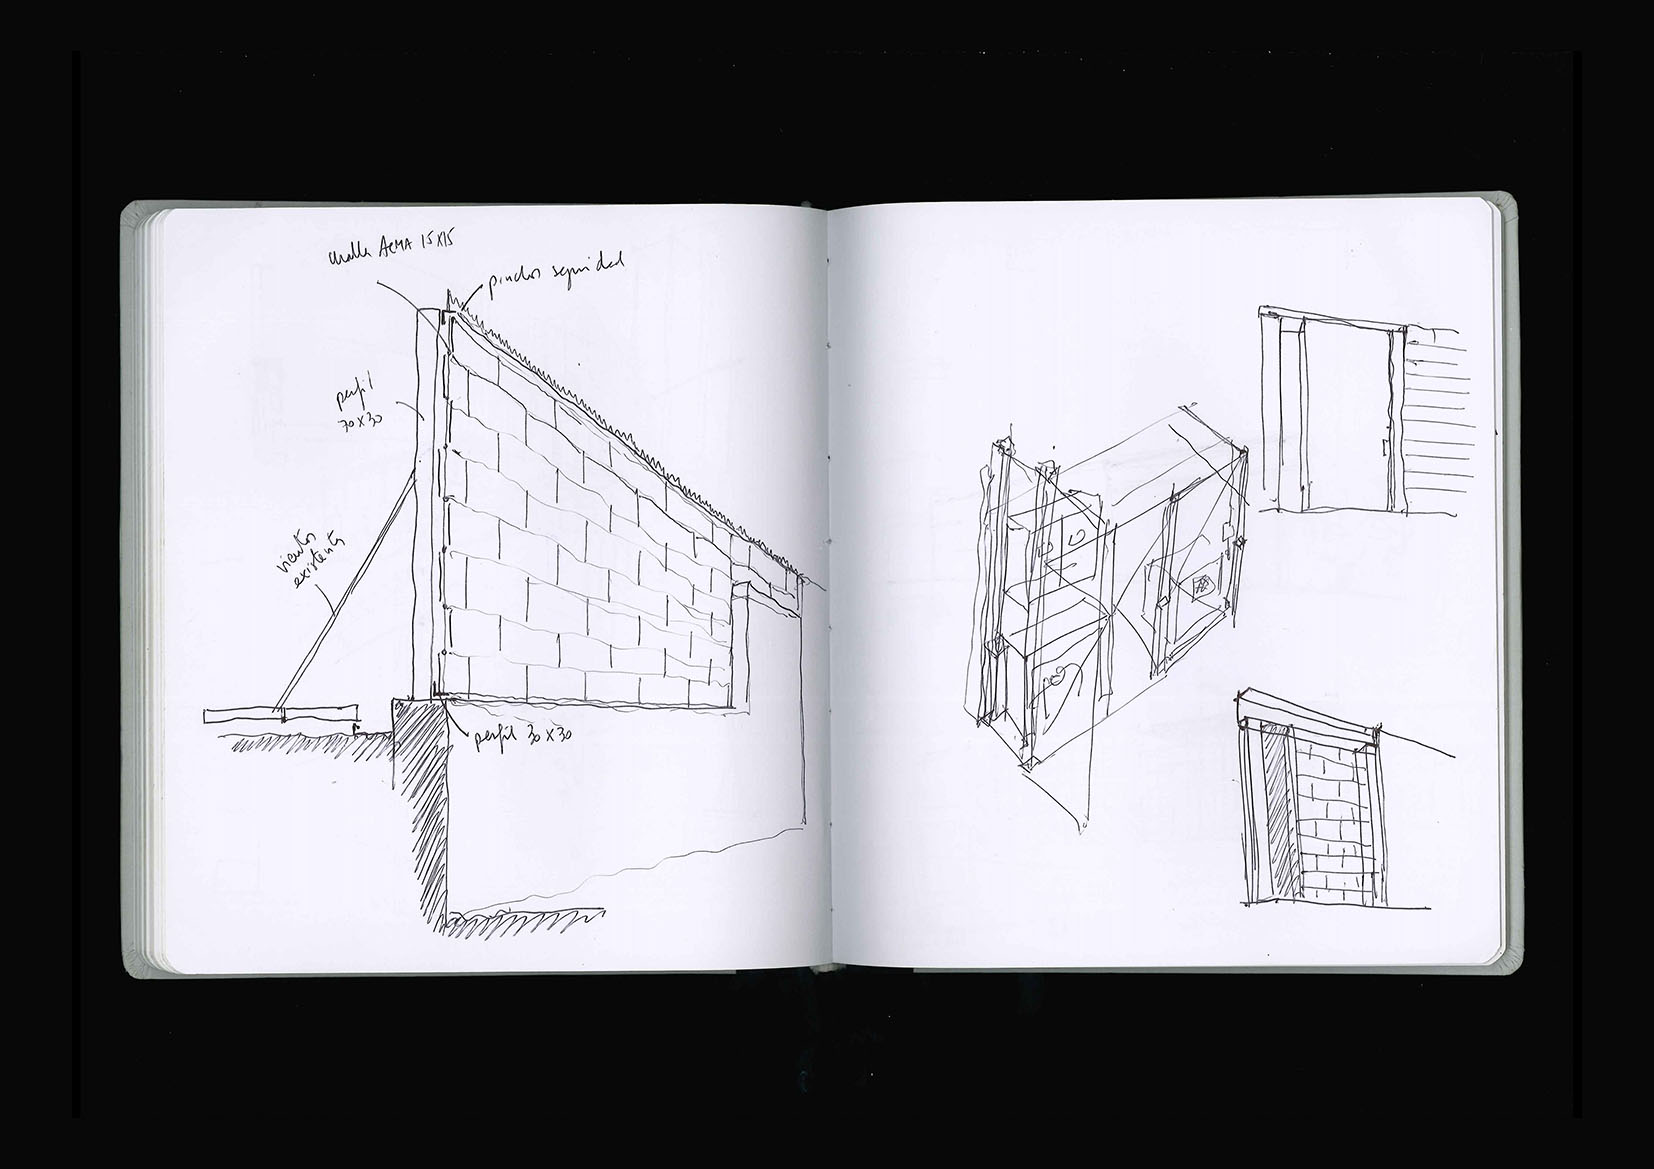 malla ACMA 15X15
pinchos seguridad
perfil
70X30
vientos
existentes
perfil 30X30